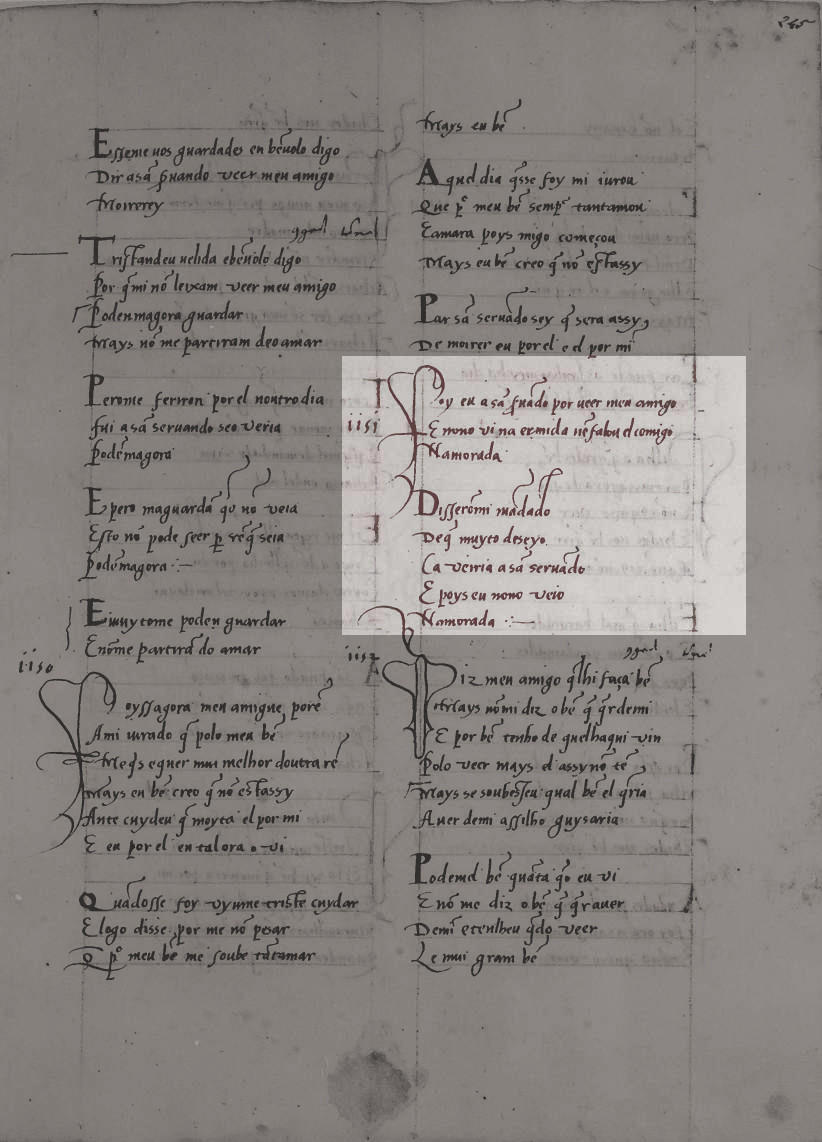 245
Esseme uos guardades en bēuolo digo
Dir asā s̃uando ueer meu amigo
Moirerey
Tristandeu uelida ebēuolo digo
Por q̄mi nō leixam ueer meu amigo
Podenmagora guardar
Mays nō me partiram deo amar
Perome feriron por el noutro dia
fui a sā seruando seo ueria
Podēmagora
E pero maguardā q̄o nō ueia
Esto nō pode seer
Podēmagora
Eimuytome poden guardar
Enōme partirā do amar
1150
Poyssagora meu amigue porē
Ami iurado q̄ polo meu bē
Mays eu bē creo q̄ nō estassy
Ante cuydeu q̄ moyra el por mi
E eu por el en tal ora o vi
Quādosse foy uyume triste cuydar
E logo disse por me nō pesar
Q̄ p̄ meu bē me soube tātamar
Mays eu bē
Aquel dia q̄sse foy mi iurou
Que p̄ meu bē semp̄ tantamou
Eamara poys migo começou
Mays eu bē creo q̄ nō estassy
Par sā seruādo sey q̄ sera assy
De moirer eu por el e el por mi
1151
Foy eu a sā s̃uādo por ueer meu amigo
E nono vi na ermida nē falou el comigo
Namorada
Disserōmi mādado
Deq̄ muyto deseyo
Ca verria a sā seruādo
E poys eu nono veio
Namorada
1152
Diz meu amigo q̄lhi faça bē
Mays nōmi diz o bē q̄ q̄rdemi
E por bē tenho de quelhaqui vin
Polo veer mays el assy nō tē
Mays se soubesseu qual bē el q̄ria
Auer demi assilho guysaria
Podemel bē quāta q̄o eu vi
E nō me diz o bē q̄ q̄rauer
Demi etenlheu q̄do veer
Le mui gram bē